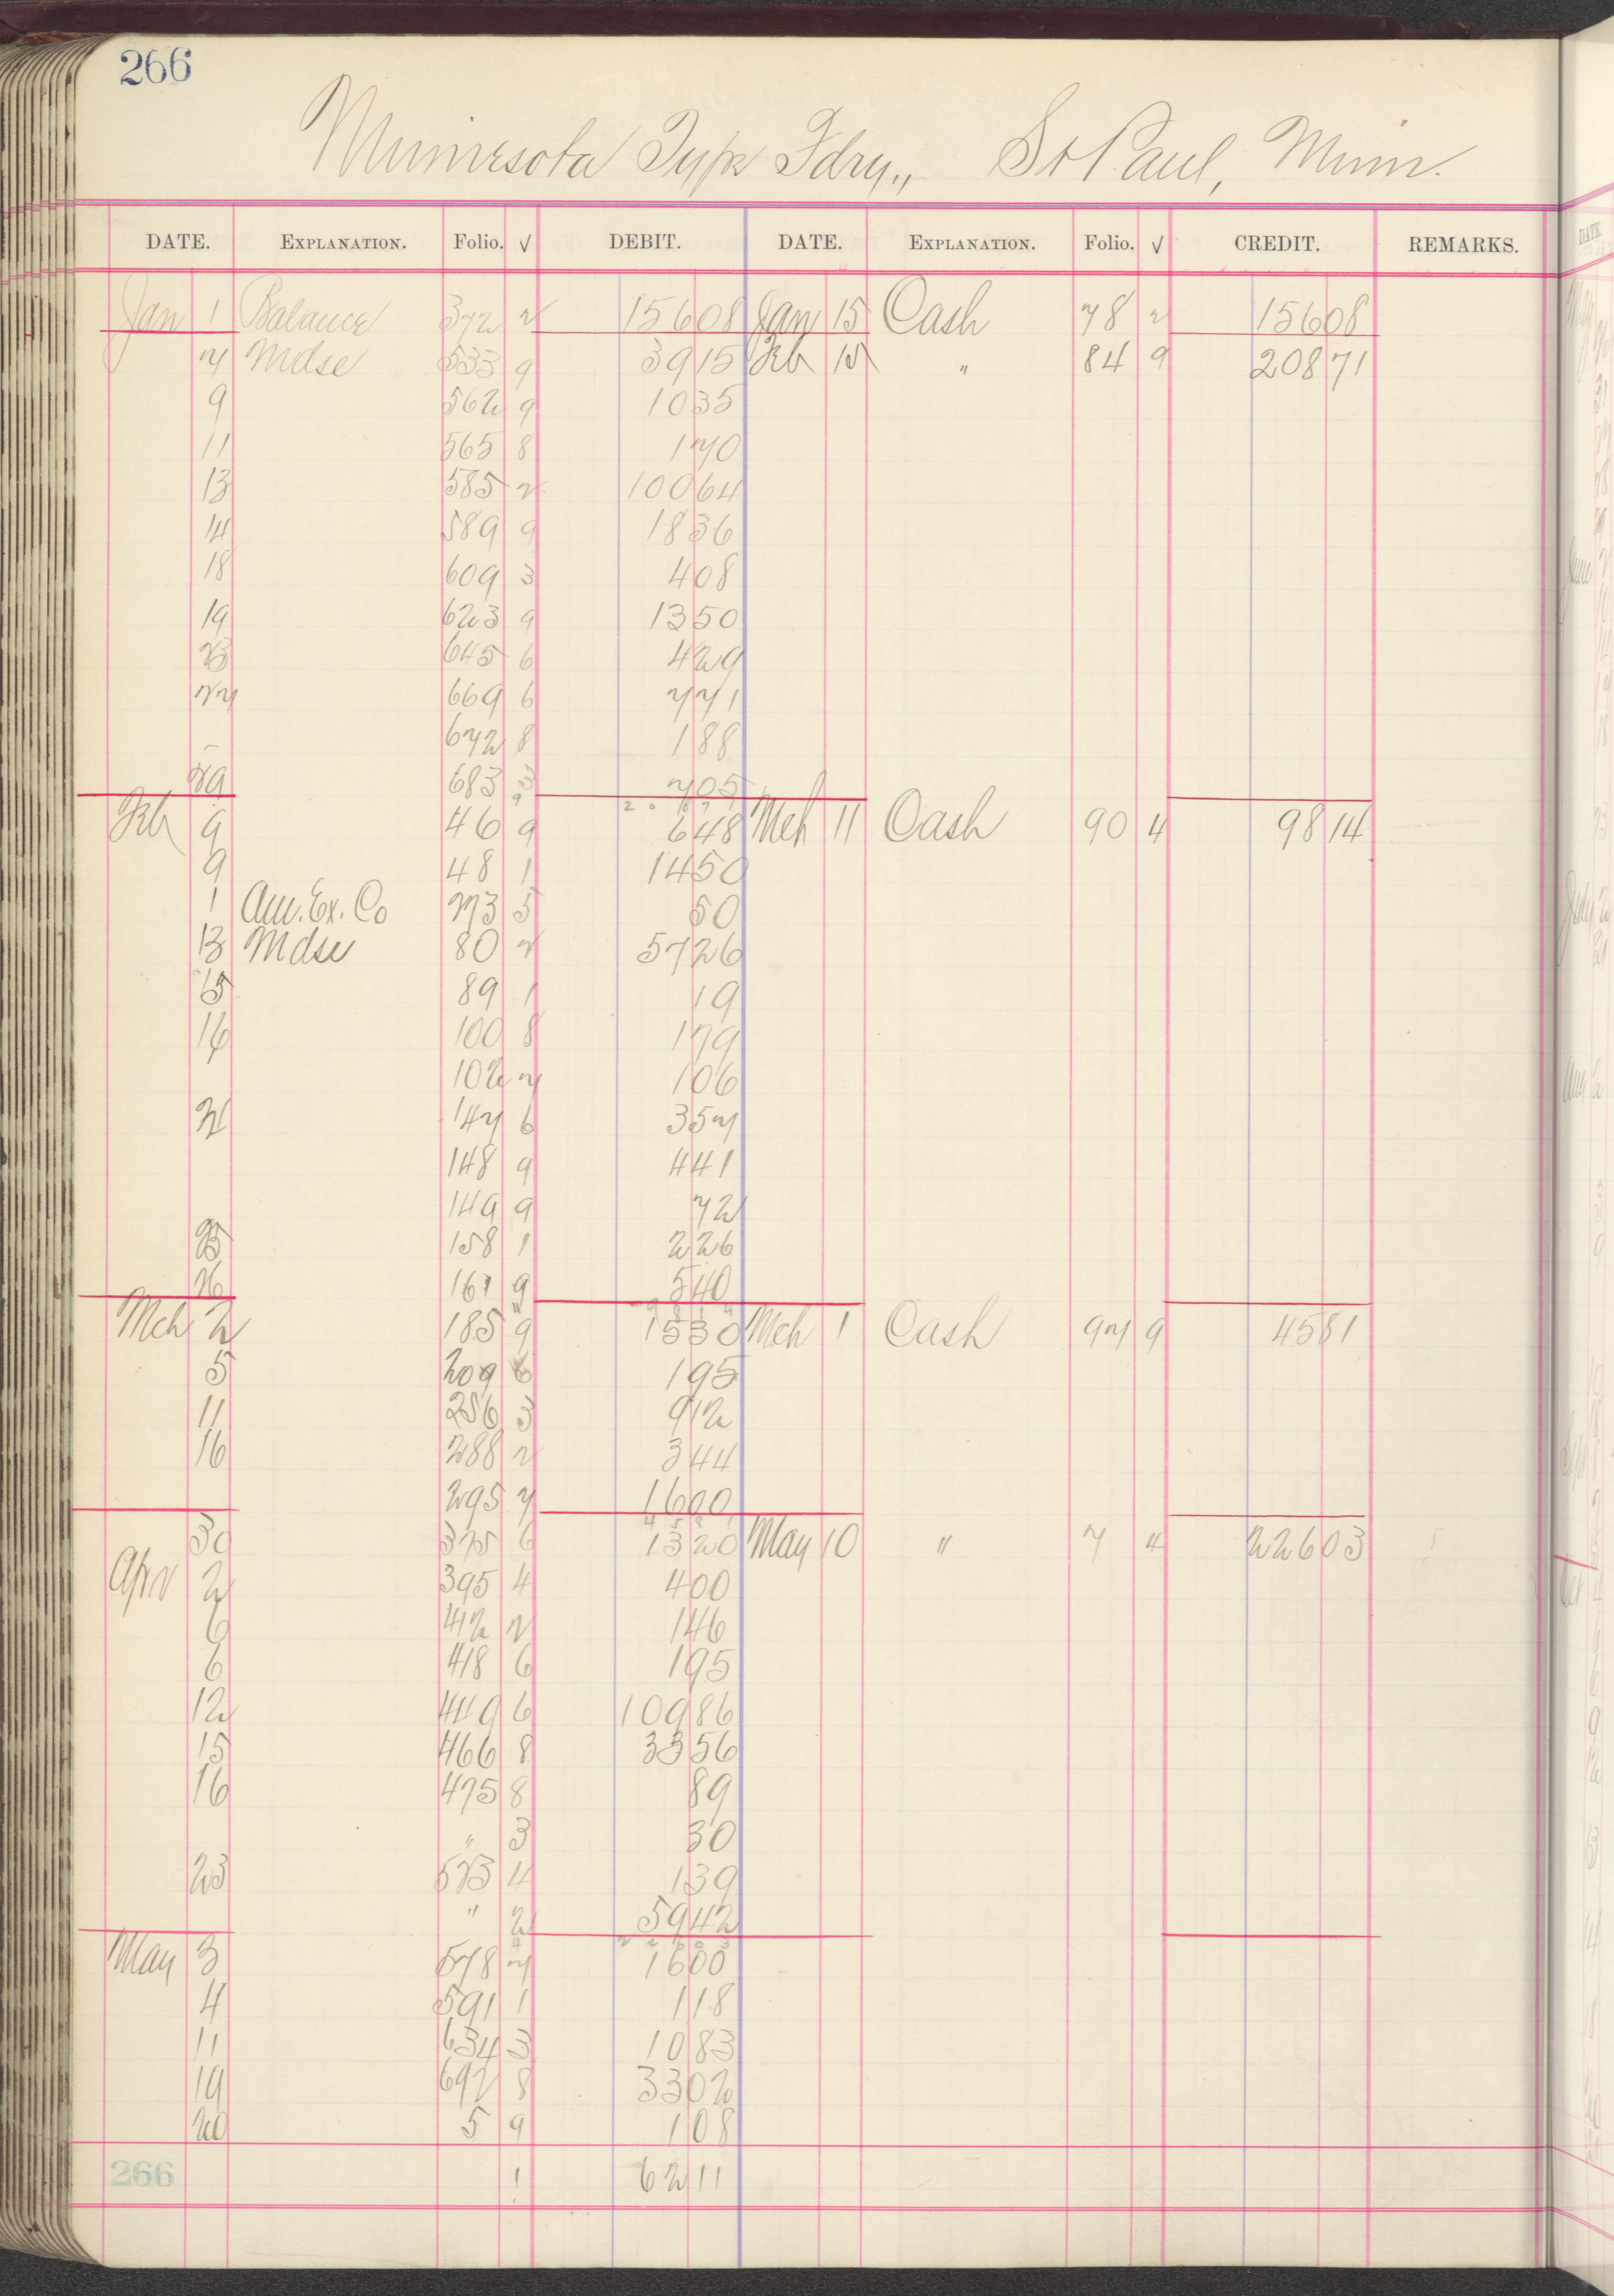 266
Minnesota Type Fdry., St Paul, Minn.
DATE. EXPLANATION. Folio. √ DEBIT. DATE. EXPLANATION. Folio. √ CREDIT. REMARKS.
Jan 1 Balance 372 2 156 08 Jan 15 Cash 78 2 156 08
7 Mdse 533 9 39 15 Feb 15 " 84 9 208 71
9 562 9 10 35
11 565 8 1 70
13 585 2 100 64
14 589 9 18 36
18 609 3 4 08
19 623 9 13 50
23 645 6 4 29
27 669 6 7 71
- 672 8 1 88
29 683 3 7 05
9 208 71
Feb 9 46 9 6 48 Mch 11 Cash 90 4 98 14
9 48 1 14 50
1 Am. Ex. Co 273 5 50
13 Mdse 80 2 57 26
15 89 1 19
16 100 8 1 79
102 7 1 06
21 147 6 3 57
148 9 4 41
149 9 72
23 158 1 2 26
26 161 9 5 40
4 98 14
Mch 2 185 9 15 30 Mch 1 Cash 97 9 45 81
5 209 6 1 95
11 256 3 9 12
16 288 2 3 44
295 7 16 00
45 81
30 375 6 13 20 May 10 " 7 4 226 03
Apr 2 395 4 4 00
6 412 2 1 46
6 418 6 1 95
12 449 6 109 86
15 466 8 33 56
16 475 8 89
" 3 30
23 523 4 1 39
" 2 59 42
4 226 03
May 3 578 7 16 00
4 591 1 1 18
11 634 3 10 83
19 692 8 33 02
20 5 9 1 08
266 1 62 11